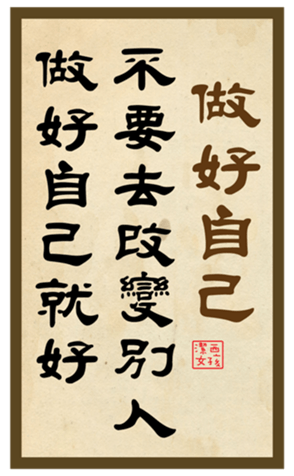 做好自己
不要去改變別人
做好自己就好